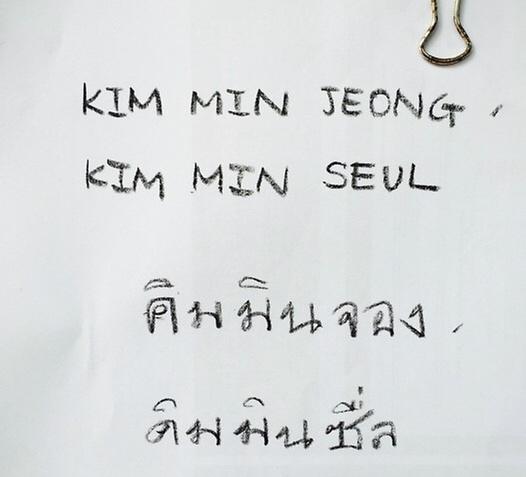 KIM MIN JEONG,
KIM MIN SEUL
คิมมินจอง,
คิมมินซึ่ล